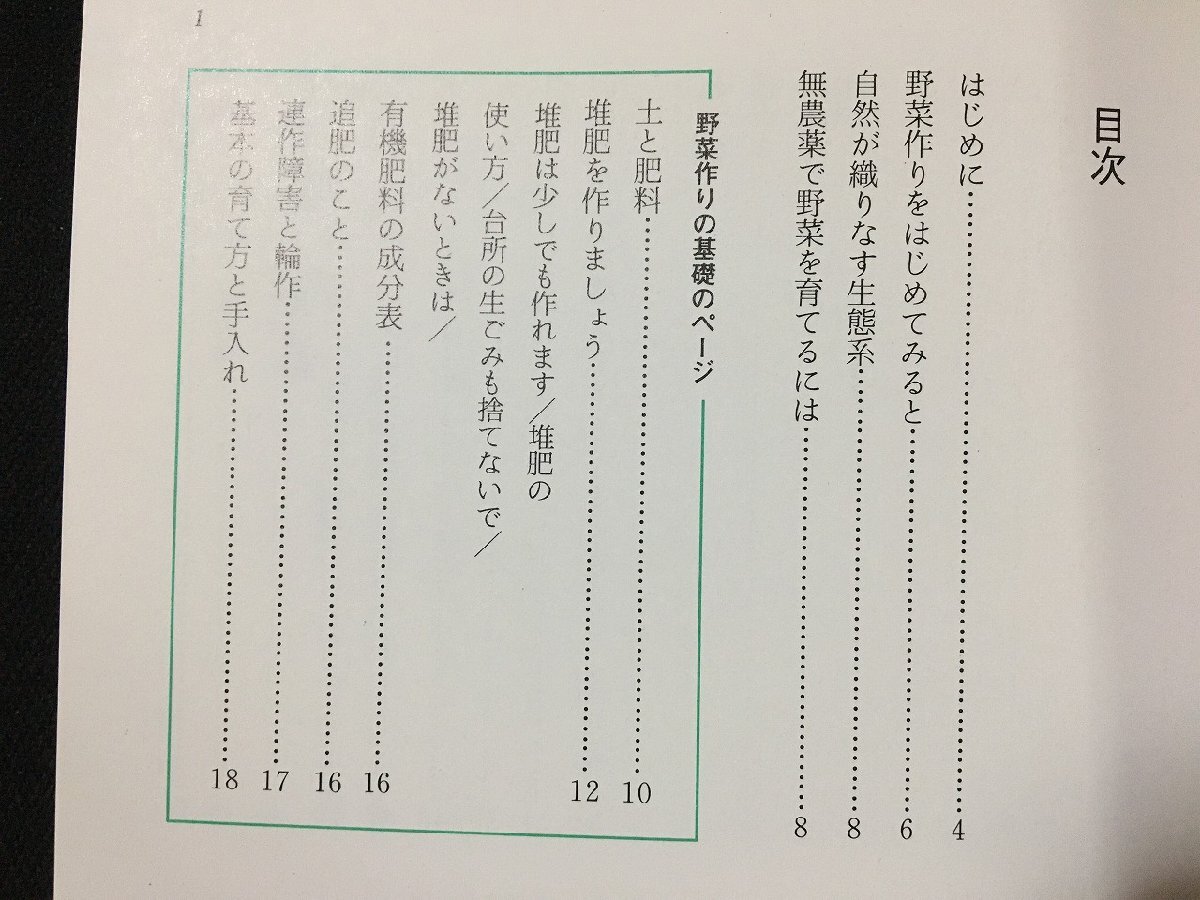 目次
はじめに……………………………4
野菜作りをはじめてみると……………………………6
自然が織りなす生態系……………………………8
無農薬で野菜を育てるには……………………………8
野菜作りの基礎のページ
土と肥料……………………………10
堆肥を作りましょう……………………………12
堆肥は少しでも作れます／堆肥の
使い方／台所の生ごみも捨てないで／
堆肥がないときは／
有機肥料の成分表……………………………16
追肥のこと……………………………16
連作障害と輪作……………………………17
基本の育て方と手入れ……………………………18
1